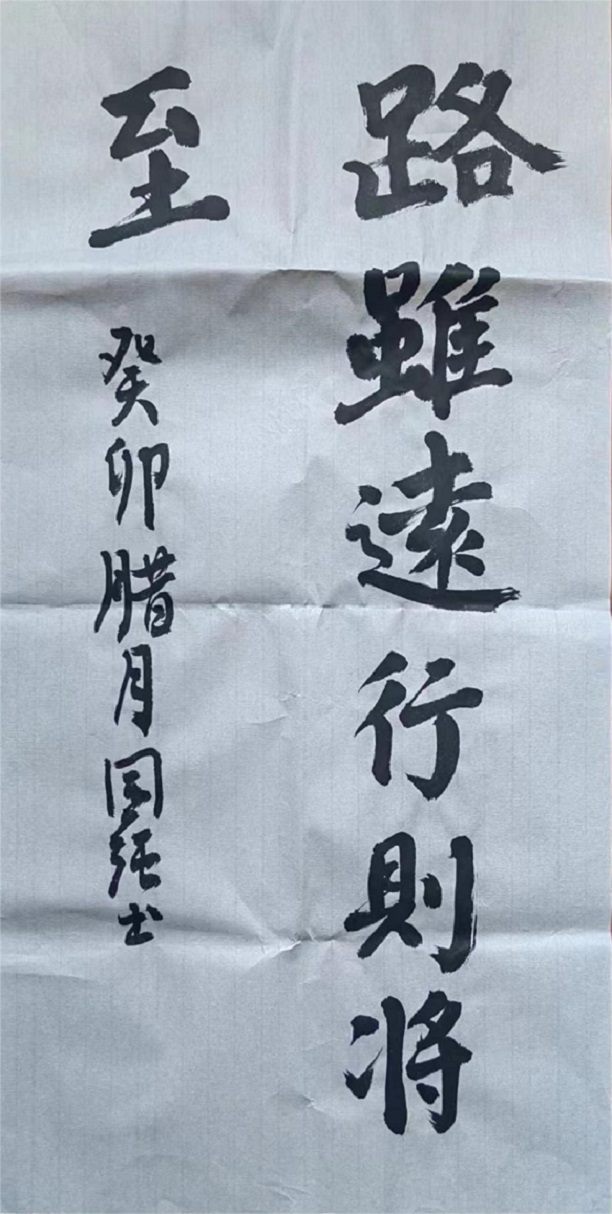 路雖遠行則将
至
癸卯腊月国强书